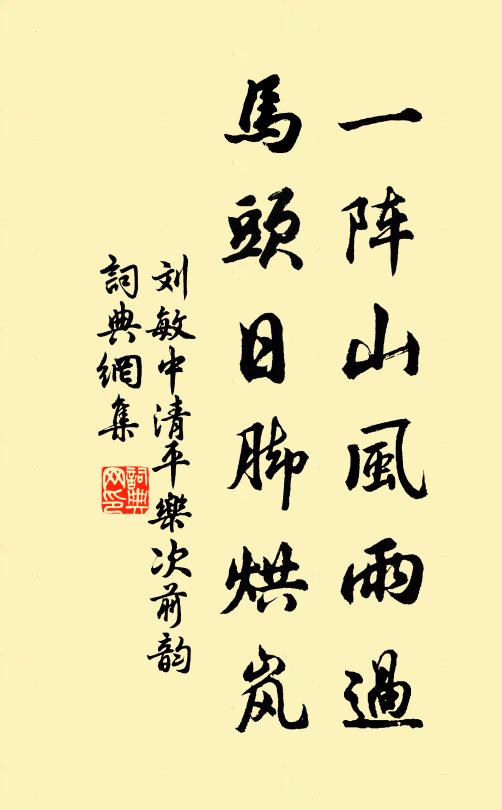 一阵山風雨過
馬頭日脚烘岚
刘敏中清平樂次前韵
詞典網集
詞典网印